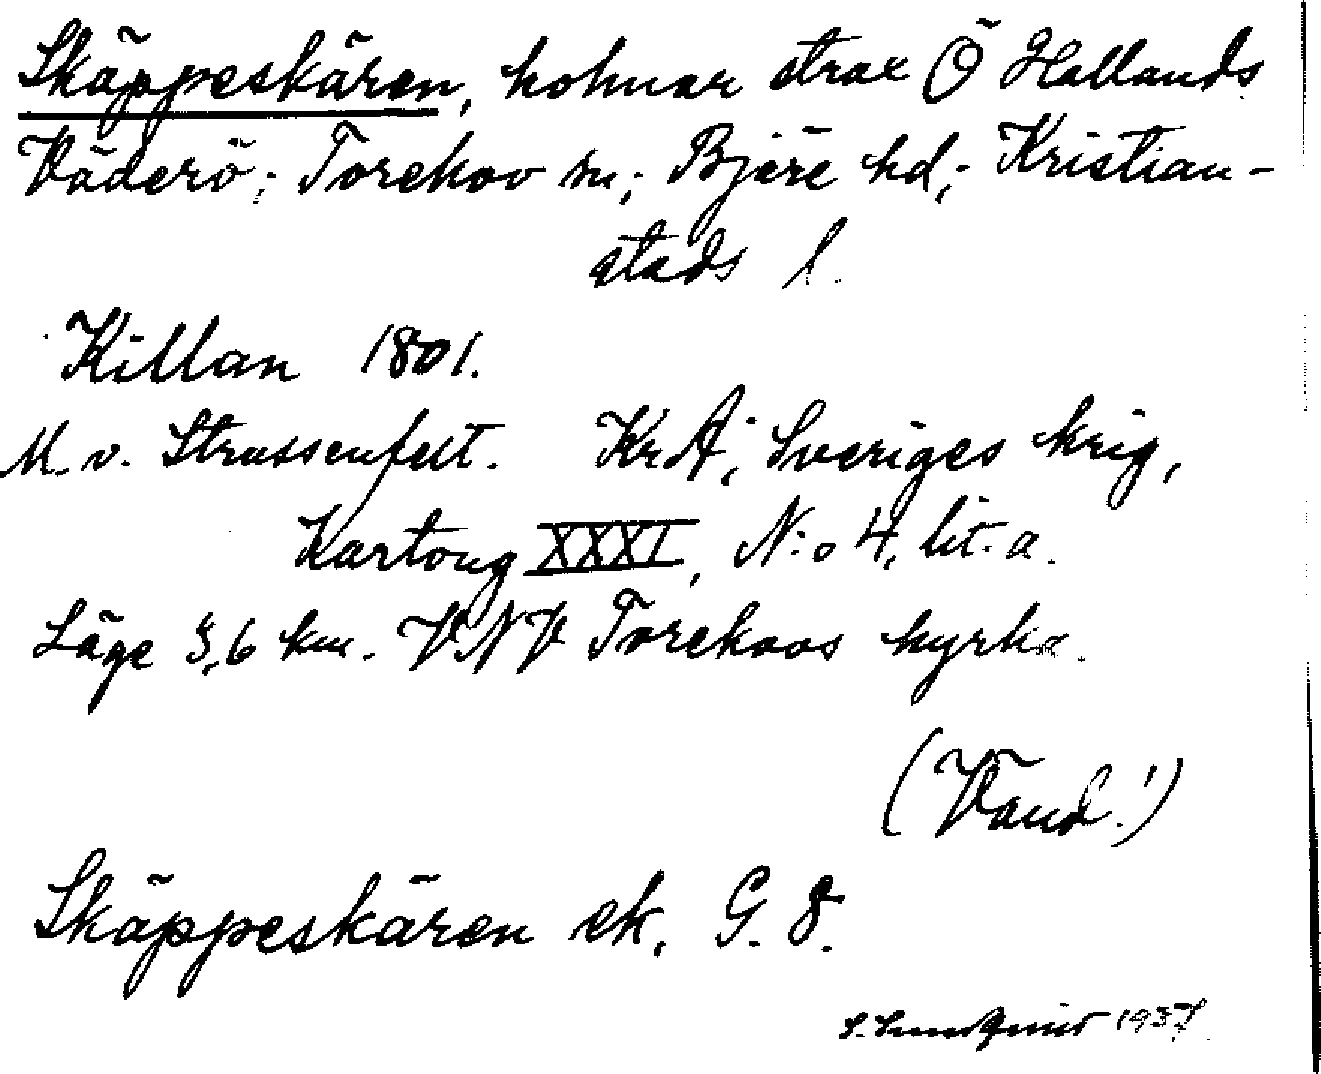 Skäppeskären, holmar strax Ö Hallands
Väderö; Torekov sn; Bjäre hd; Kristian-
stads l.
Killan 1801.
M. v. Strussenfelt. KrA; Sveriges krig,
Kartong XXXI, N:o 4, lit. a.
Läge 3,6 km. VNV Torekovs kyrka.
(Vänd!)
Skäppeskären ek. G. 8.
S. Lundquist 1937